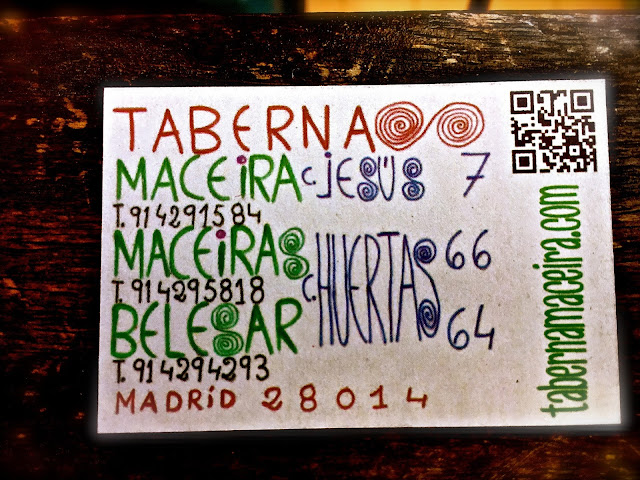 TABERNA
MACEIRA C. JESÚS 7
T. 914291584
MACEIRAS C. HUERTAS 66
T. 914295818
BELESAR 64
T. 914294293
MADRID 28014
tabernamaceira.com